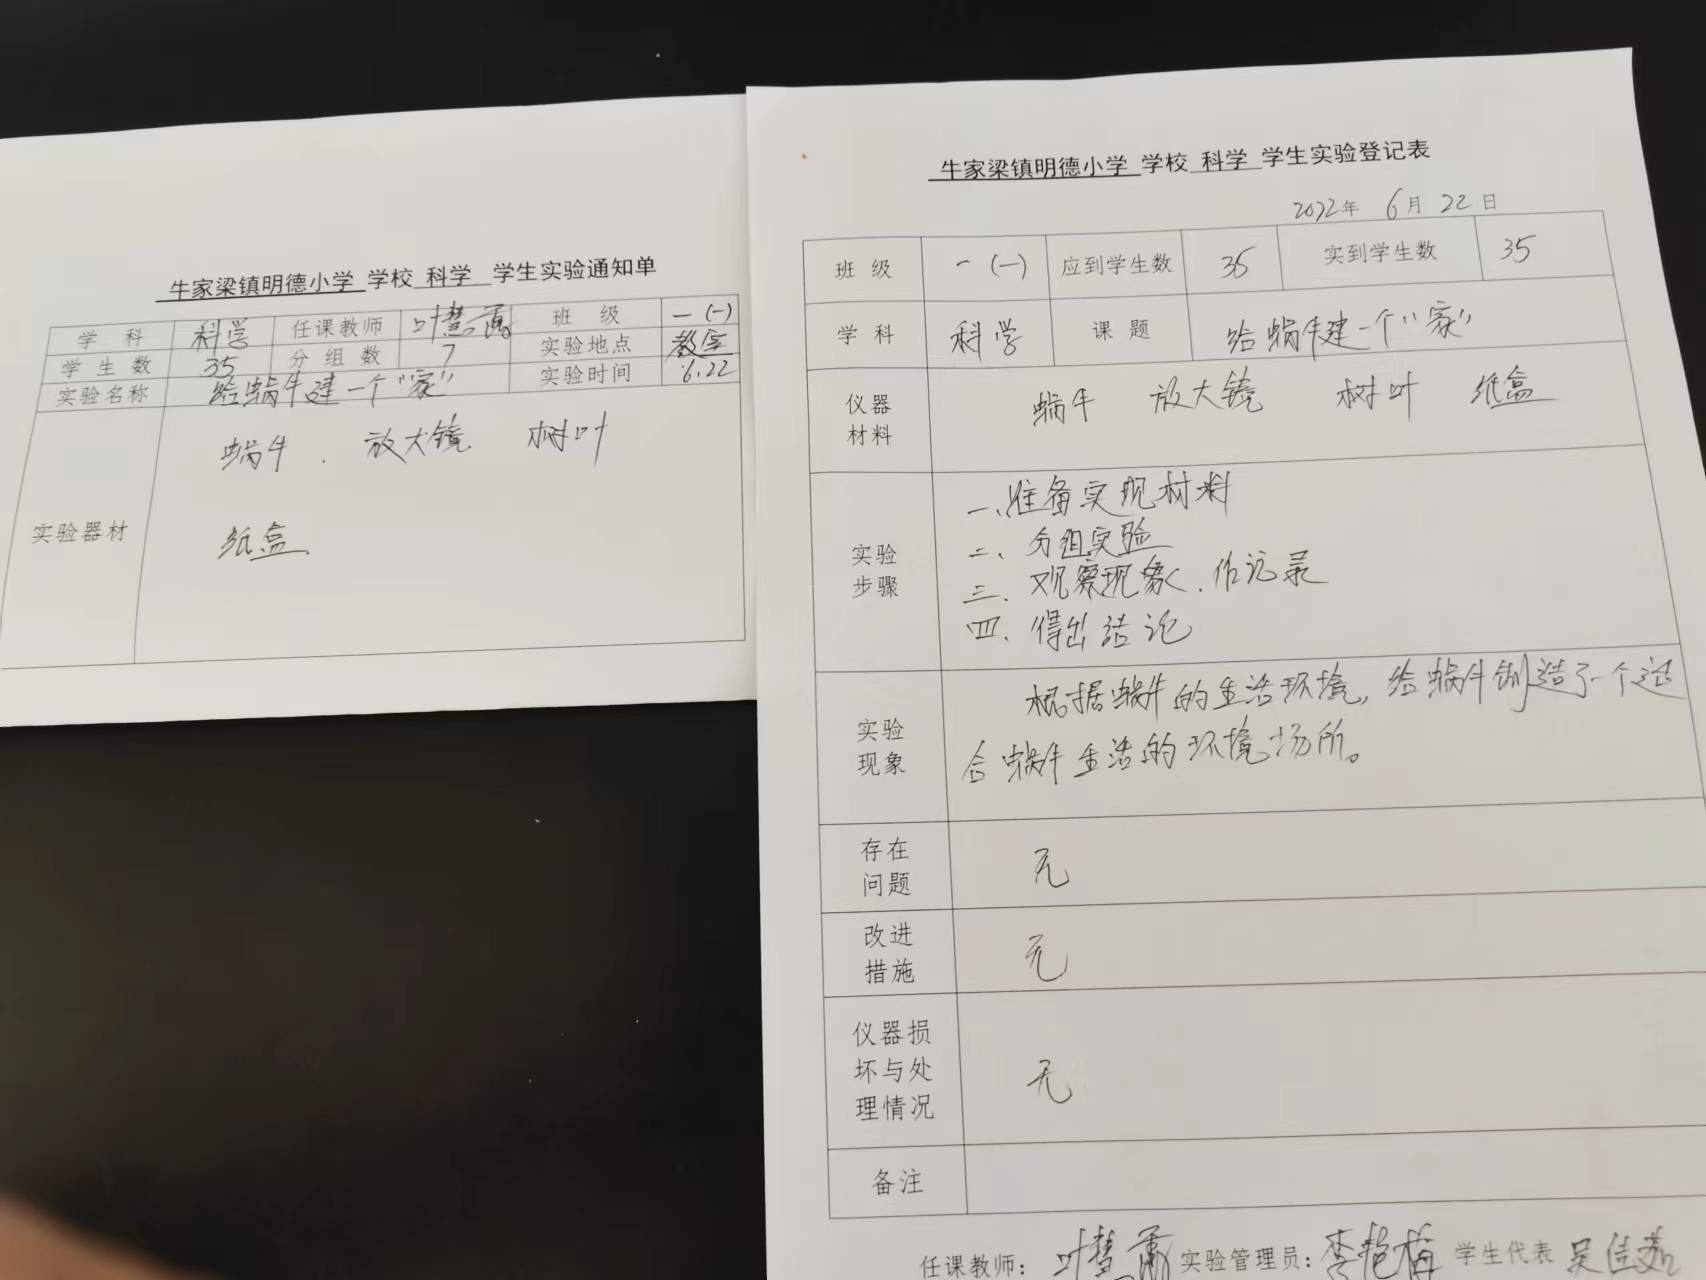 牛家梁镇明德小学 学校 科学 学生实验通知单
学 科 科学 任课教师 叶慧 班 级 一(一)
学 生 数 35 分 组 数 7 实验地点 教室
实验名称 给蜗牛建一个"家" 实验时间 6.22
实验器材 蜗牛. 放大镜. 树叶
纸盒.
牛家梁镇明德小学 学校 科学 学生实验登记表
2022年 6月 22日
班 级 一(一) 应到学生数 35 实到学生数 35
学 科 科学 课 题 给蜗牛建一个"家"
仪器
材料
蜗牛 放大镜 树叶 纸盒
实验
步骤
一、准备实现材料
二、分组实验
三、观察现象.作记录
四、得出结论
实验
现象
根据蜗牛的生活环境,给蜗牛制造了一个适
合蜗牛生活的环境场所。
存在
问题
无
改进
措施
无
仪器损
坏与处
理情况
无
备注
任课教师: 叶慧 实验管理员: 李艳梅 学生代表 吴佳